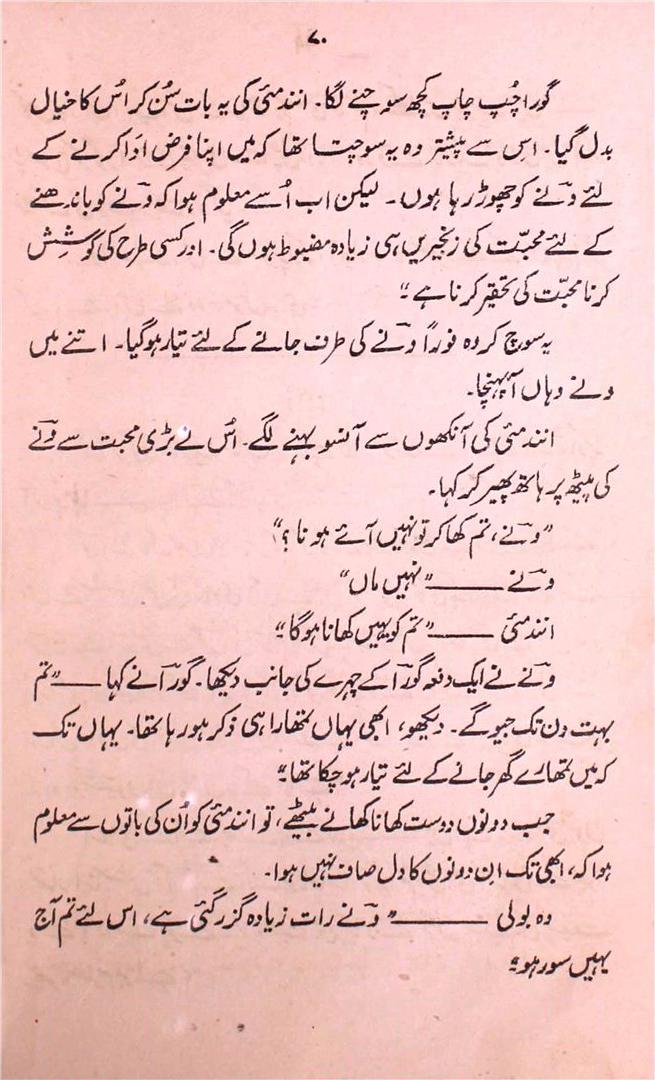 ۷۰
گورا چُپ چاپ کچھ سوچنے لگا۔ انندمئی کی یہ بات سُن کر اُس کا خیال
بدل گیا۔ اِس سے پیشتر وہ یہ سوچتا تھا کہ میں اپنا فرض اَدا کرنے کے
لئے ونے کو چھوڑ رہا ہوں۔ لیکن اب اُسے معلوم ہوا کہ ونے کو باندھنے
کے لئے محبّت کی زنجیریں ہی زیادہ مضبوط ہوں گی۔ اور کسی طرح کی کوشِش
کرنا محبّت کی تحقیر کرنا ہے“
یہ سوچ کر وہ فوراً ونے کی طرف جانے کے لئے تیار ہو گیا۔ اتنے میں
ونے وہاں آ پہنچا۔
انندمئی کی آنکھوں سے آنسو بہنے لگے۔ اُس نے بڑی محبت سے ونے
کی پیٹھ پر ہاتھ پھیر کر کہا۔
”ونے، تم کھا کر تو نہیں آئے ہو نا؟“
ونے ——— ”نہیں ماں“
انندمئی ——— ”تم کو یہیں کھانا ہوگا“
ونے نے ایک دفعہ گورا کے چہرے کی جانب دیکھا۔ گورا نے کہا ——— ”تم
بہت دن تک جیو گے۔ دیکھو، ابھی یہاں تمھارا ہی ذکر ہو رہا تھا۔ یہاں تک
کہ میں تمھارے گھر جانے کے لئے تیار ہو چکا تھا“
جب دونوں دوست کھانا کھانے بیٹھے، تو انندمئی کو اُن کی باتوں سے معلوم
ہوا کہ، ابھی تک اِن دونوں کا دل صاف نہیں ہوا۔
وہ بولی ——— ”ونے رات زیادہ گزر گئی ہے، اس لئے تم آج
یہیں سو رہو“